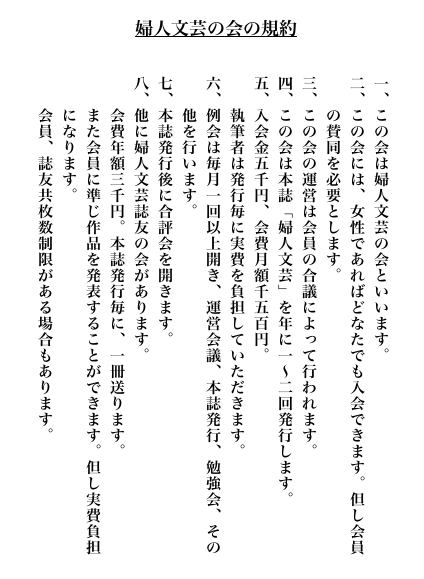 婦人文芸の会の規約
一、この会は婦人文芸の会といいます。
二、この会には、女性であればどなたでも入会できます。但し会員
の賛同を必要とします。
三、この会の運営は会員の合議によって行われます。
四、この会は本誌「婦人文芸」を年に一〜二回発行します。
五、入会金五千円、会費月額千五百円。
執筆者は発行毎に実費を負担していただきます。
六、例会は毎月一回以上開き、運営会議、本誌発行、勉強会、その
他を行います。
七、本誌発行後に合評会を開きます。
八、他に婦人文芸誌友の会があります。
会費年額三千円。本誌発行毎に、一冊送ります。
また会員に準じ作品を発表することができます。但し実費負担
になります。
会員、誌友共枚数制限がある場合もあります。